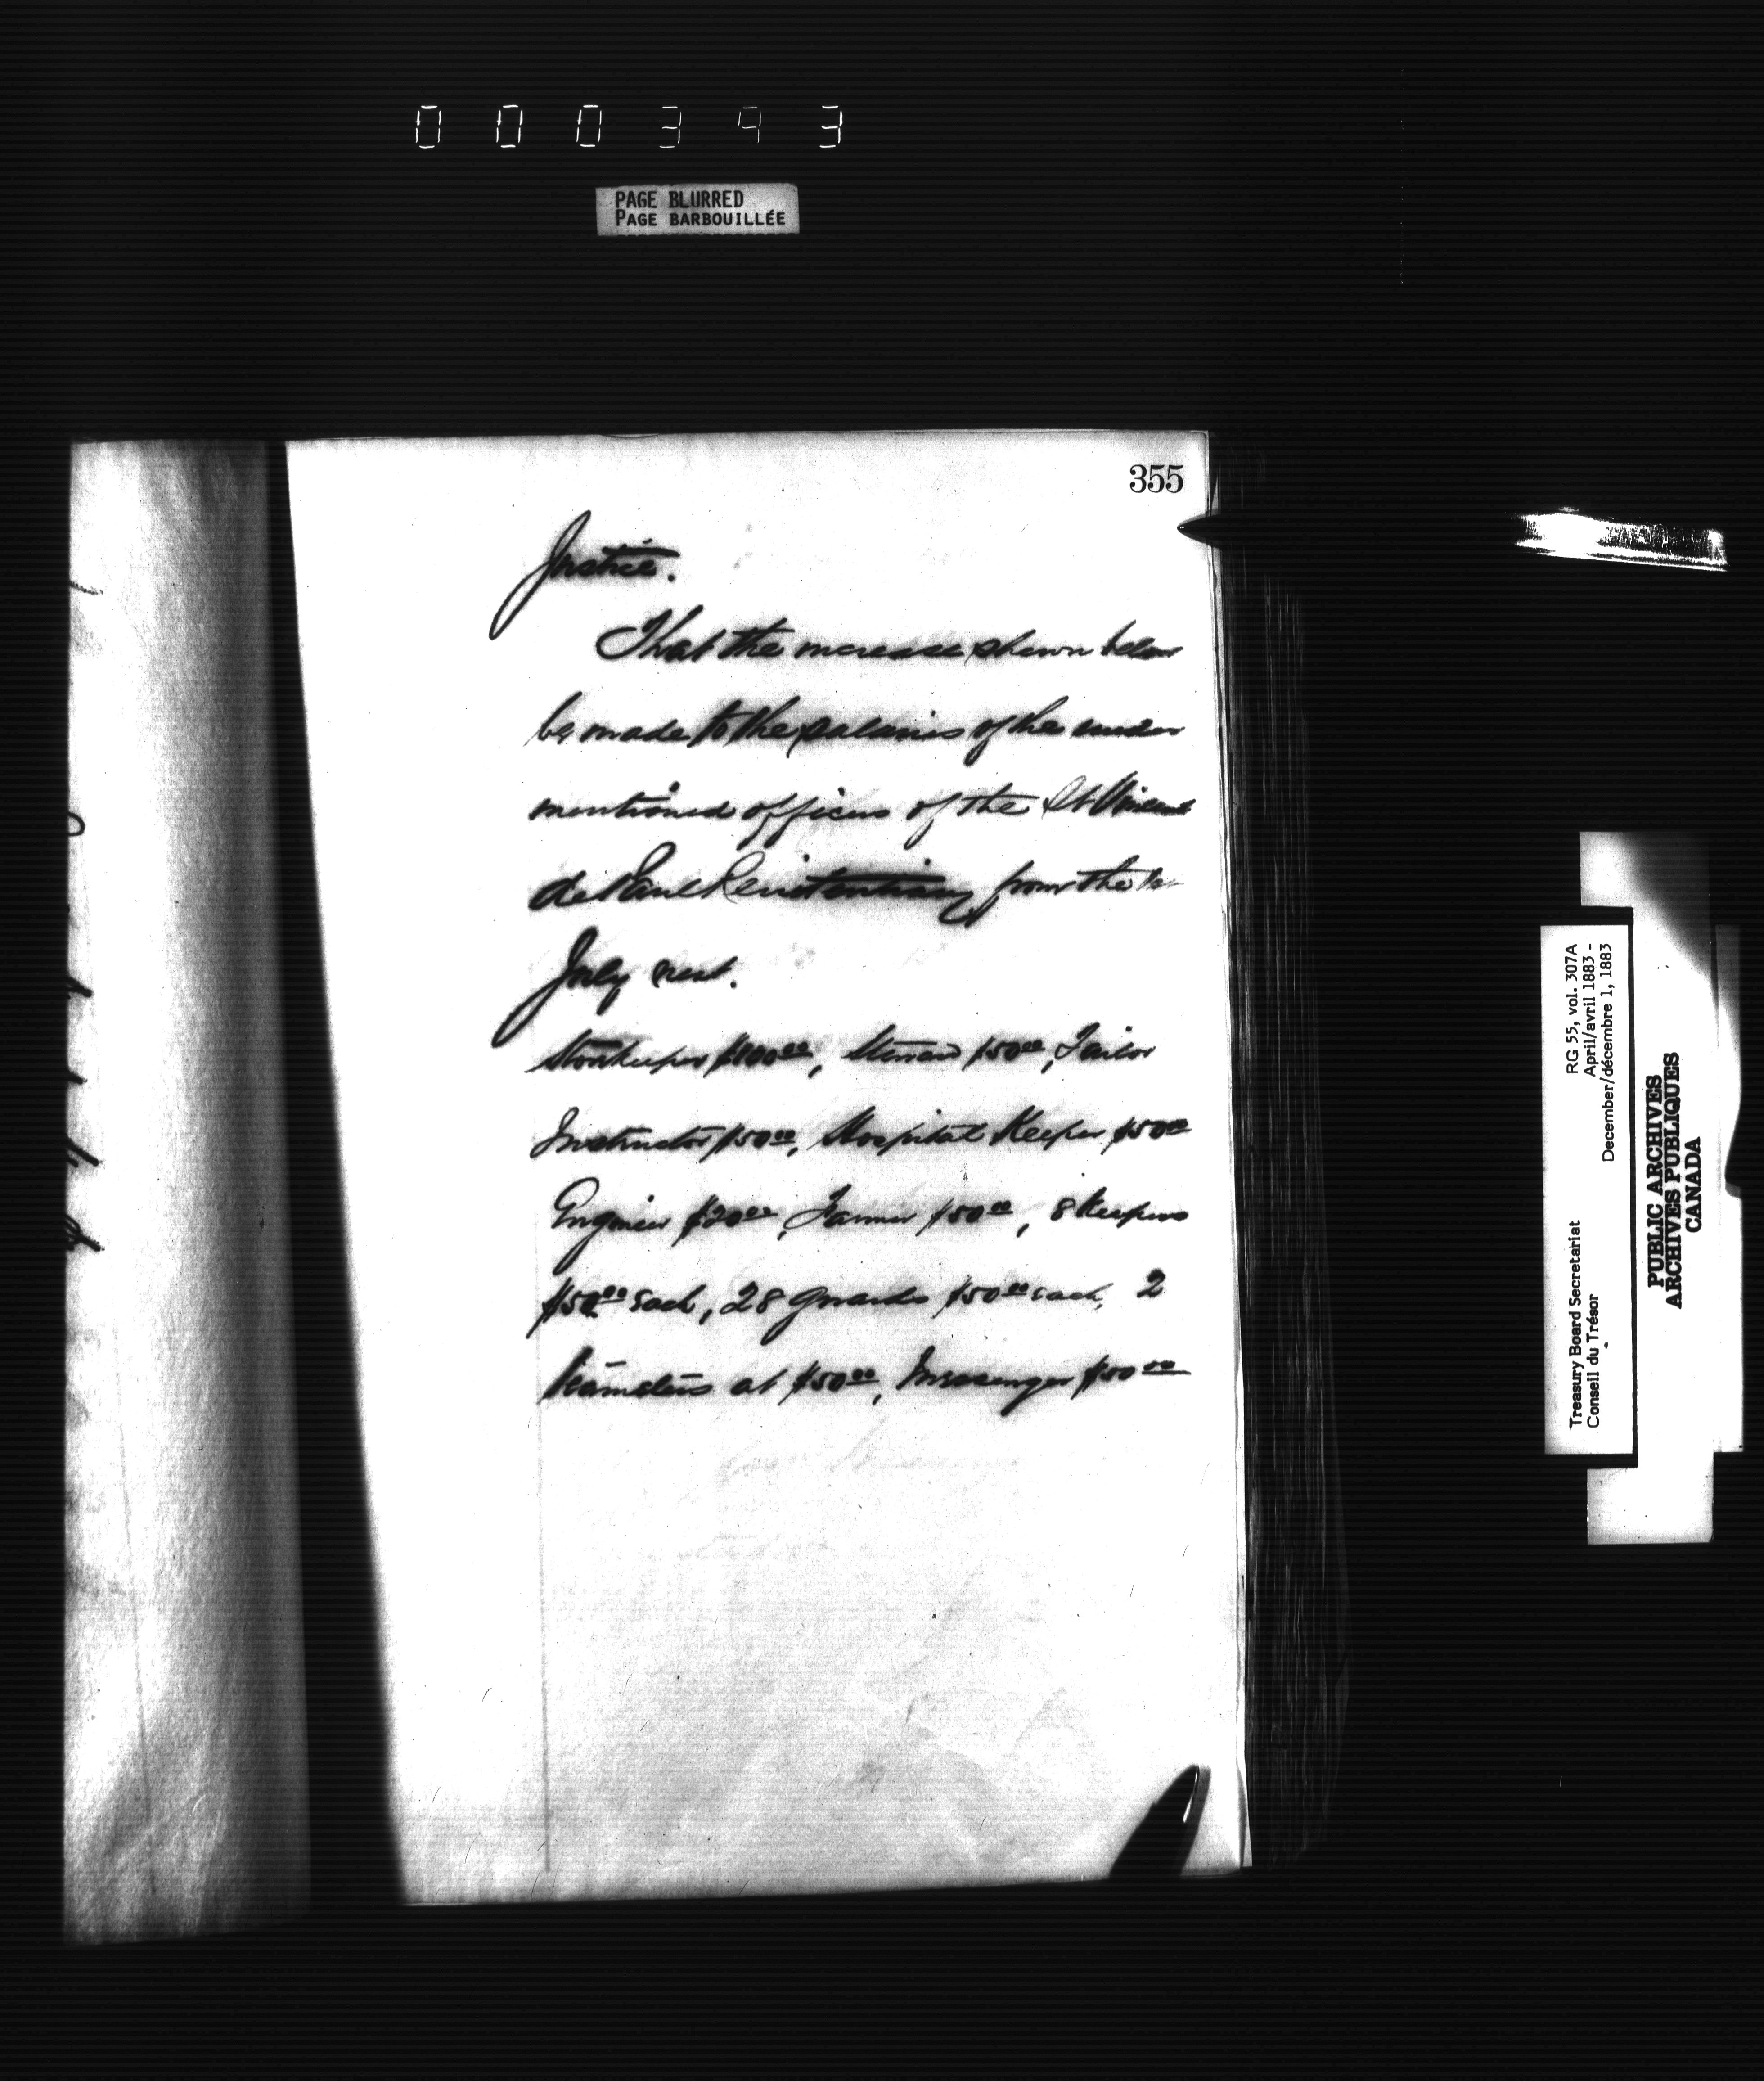 000393
PAGE BLURRED
PAGE BARBOUILLÉE
355
Justice.
That the increase shewn below
be made to the salaries of the under
mentioned officers of the St Vincent
de Paul Penitentiary from the 1st
July next.
Storekeeper $100.00, Steward $50.00, Tailor
Instructor $50.00, Hospital Keeper $50.00
Engineer $20.00, Farmer $50.00, 8 Keepers
$50.00 each, 28 guards $50.00 each, 2
teamsters at $50.00, Messenger $50.00
Treasury Board Secretariat RG 55, vol. 307A
Conseil du Trésor April/avril 1883 -
December/décembre 1, 1883
PUBLIC ARCHIVES
ARCHIVES PUBLIQUES
CANADA